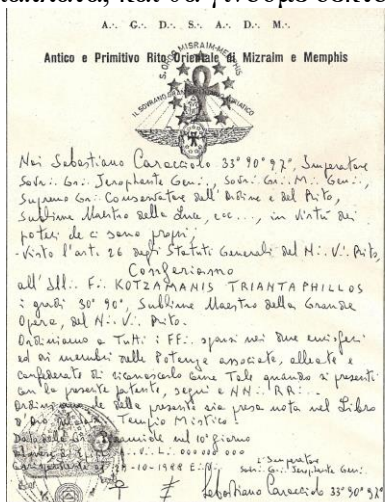 A∴ G∴ D∴ S∴ A∴ D∴ M∴
Antico e Primitivo Rito Orientale di Mizraim e Memphis
S. ORDO MISRAIM-MEMPHIS
IL SOVRANO GRAN
Noi Sebastiano Caracciolo 33° 90° 97°, Imperatore
Sovr∴ Gr∴ Jerophante Gen∴, Sovr∴ Gr∴ M∴ Gen∴,
Supremo Gr∴ Conservatore dell'Ordine e del Rito,
Sublime Maestro della Luce, ecc..., in virtù dei
poteri che ci sono propri;
- Visto l'art. 26 degli Statuti Generali del N∴ V∴ Rito,
Conferiamo
all'Ill∴ F∴ KOTZAMANIS TRIANTAPHILLOS
i gradi 30° 90°, Sublime Maestro della Grande
Opera, del N∴ V∴ Rito.
Ordiniamo a Tutti i FF∴ sparsi nei due emisferi
ed ai membri delle Potenze associate, alleate e
confederate di riconoscerlo come Tale quando si presenti
con la presente patente, segni e NN∴ RR∴.
Ordiniamo che della presente sia presa nota nel Libro
d'Oro Tempio Mistico.
nel 10° giorno
V∴ L∴ 000 000 000
-10-1988 E∴ V∴
L'Imperatore
Sovr∴ Gr∴ Jerophante Gen∴
Sebastiano Caracciolo 33° 90° 97°